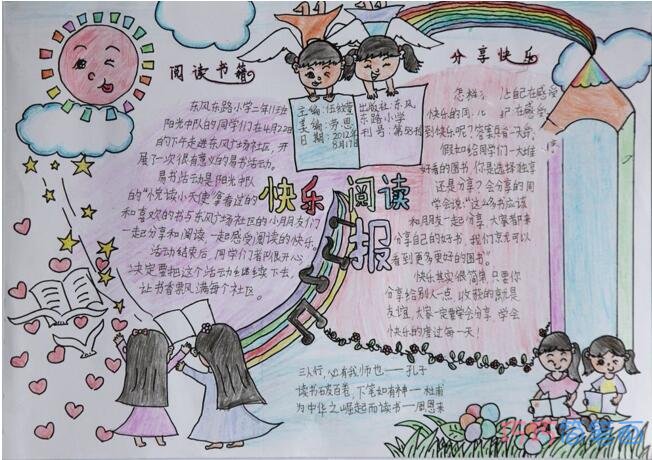 阅读书籍
分享快乐
东风东路小学二年11班
阳光中队的同学们在4月22日
的下午走进东风广场社区,开
展了一次很有意义的易书活动。
易书活动是阳光中队
的“悦读小天使”拿着过的
和喜欢的书与东风广场社区的小朋友们
一起分享和阅读,一起感受阅读的快乐。
活动结束后,同学们着队很开心
决定要把这个活动继续下去,
让书香飘风满每个社区。
主编:伍
美编:劳思
日期:2012年
8月17日
出版社:东风
东路小学
刊号:第88刊
快乐阅读
报
怎样
让自己在感受
快乐的同
到快乐呢?答案只有一次命,
假如给同学们一大堆
好看的图书,你是选择独享
还是分享?会分享的同
学会说:“这么多书应该
和朋友一起分享,大家都来
分享自己的好书,我们就可以
看到更多更好的图书”。
快乐其实很简单,只要你
分享给别人一点,收获的就是
友谊,大家一定要学会分享,学会
快乐的度过每一天!
三人行,必有我师也——孔子
读书破百卷,下笔如有神——杜甫
为中华之崛起而读书——周恩来